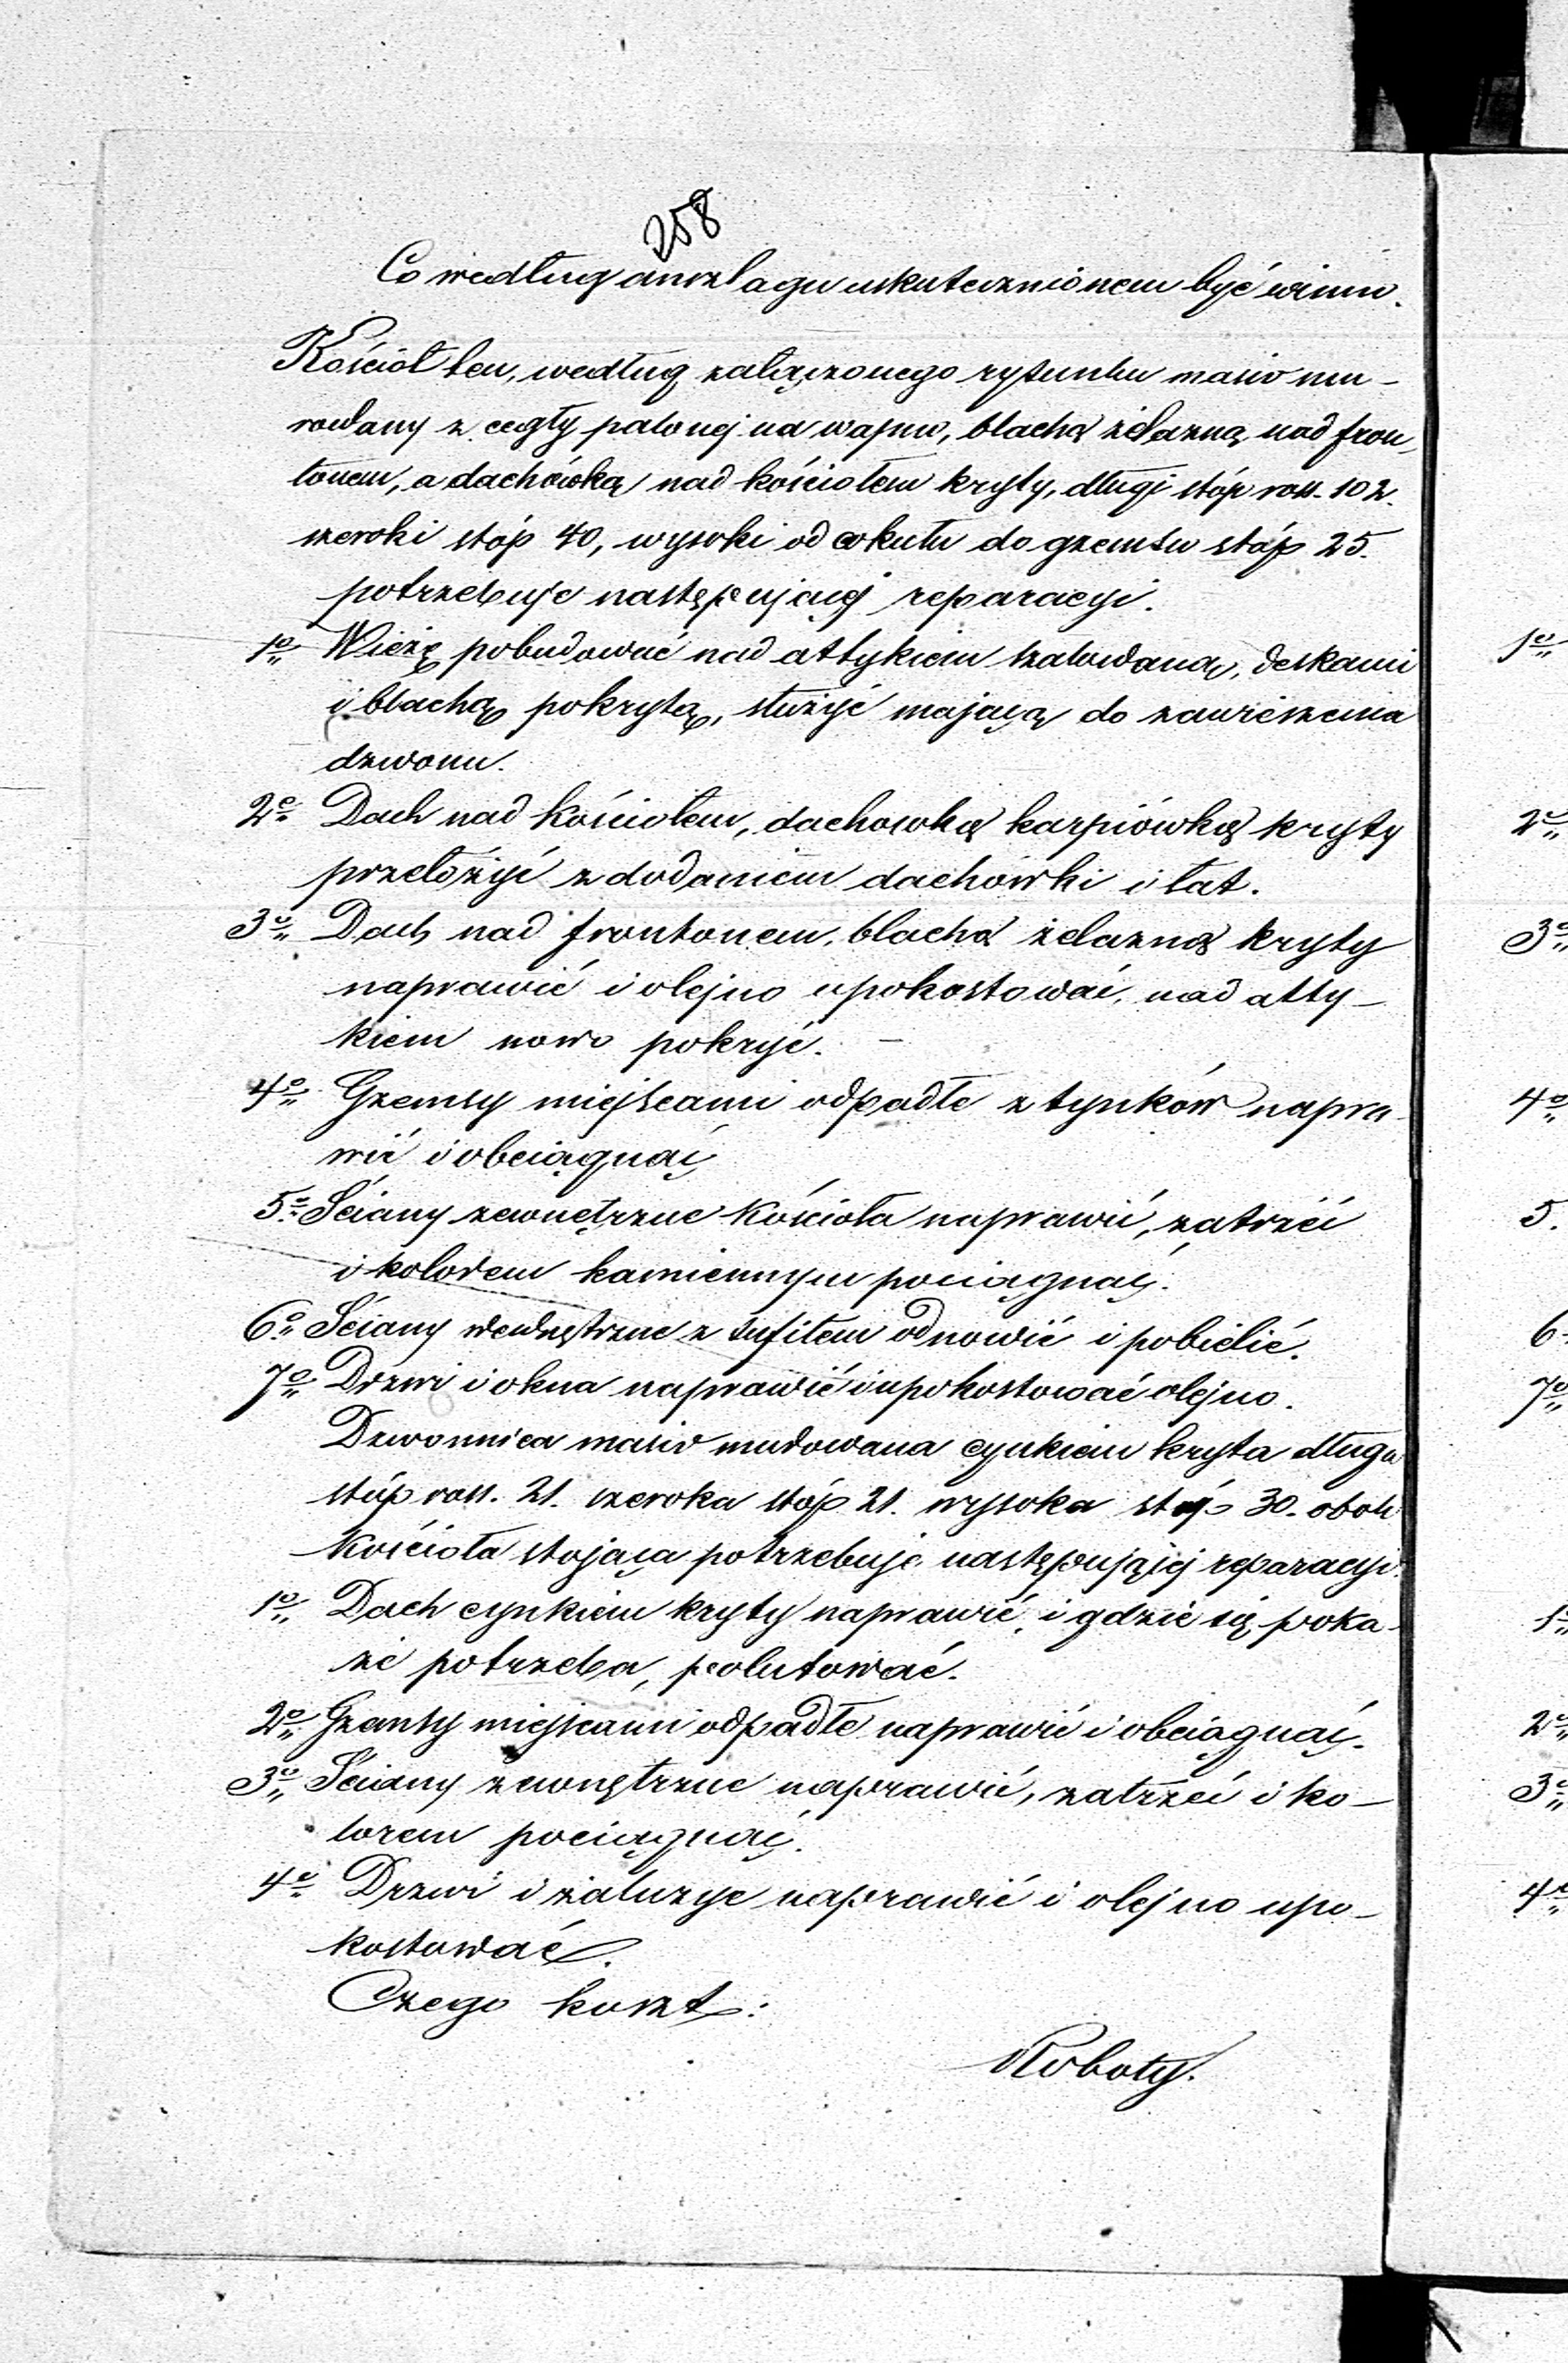 258
Co według anszlagu uskutecznionem być winno.
Kościół ten, według załączonego rysunku masiv mu-
rowany z cegły palonej na wapno, blachą żelazną nad fron-
tonem, a dachówką nad kościołem kryty, długi stóp ross. 102.
szeroki stóp 40, wysoki od cokułu do gzemsu stóp 25.
potrzebuje następującej reparacyi.
1o Wieżę pobudować nad attykiem szalowaną, deskami
i blachą pokrytą, służyć mającą do zawieszenia
dzwonu.
2o Dach nad kościołem, dachówką karpiówką kryty
przełożyć z dodaniem dachówki i łat.
3o Dach nad frontonem, blachą żelazną kryty
naprawić i olejno upokostować, nad atty-
kiem nowo pokryć. -
4o Gzemsy miejscami odpadłe z tynków napra-
wić i obciągnąć
5o Ściany zewnętrzne kościoła naprawić, zatrzeć
i kolorem kamiennym pociągnąć.
6o Ściany wewnętrzne z sufitem odnowić i pobielić.
7o Drzwi i okna naprawić i upokostować olejno.
Dzwonnica masiv murowana cynkiem kryta długa
stóp ross. 21. szeroka stóp 21. wysoka stóp 30. obok
Kościoła stojąca potrzebuje następującej reparacyi.
1o Dach cynkiem kryty naprawić, i gdzie się poka-
że potrzeba, polutować.
2o Gzemsy miejscami odpadłe naprawić i obciągnąć.
3o Ściany zewnętrzne naprawić, zatrzeć i ko-
lorem pociągnąć.
4o Drzwi i żaluzye naprawić i olejno upo-
kostować.
Czego koszt:
Roboty.
1o
2o
3o
4o
5.
6
7o
1o
2o
3o
4o